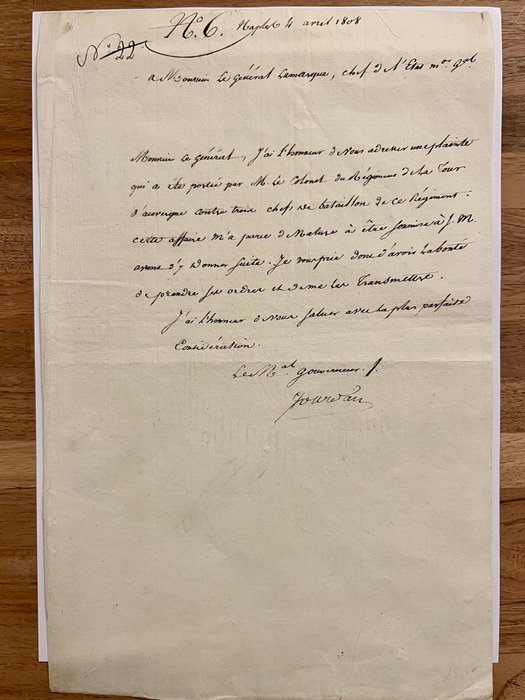 N.º 6. Naples 4 avril 1808
N.º 22
a Monsieur Le général Lamarque, chef d l'Etat m.or g.al
Monsieur Le général, J'ai L'honneur d Vous adresser une plainte
qui a été portée par M. Le Colonel du Régiment de La Tour
d'auvergne contre trois chefs De bataillon de ce Régiment.
cette affaire m'a parue d Nature à être soumise à S. M.
avant d'y Donner suite. Je vous prie donc d'avoir La bonté
de prendre ses ordres et de me les Transmettre.
J'ai L'honneur d Vous saluer avec La plus parfaite
Considération.
Le M.al gouverneur.
Jourdan